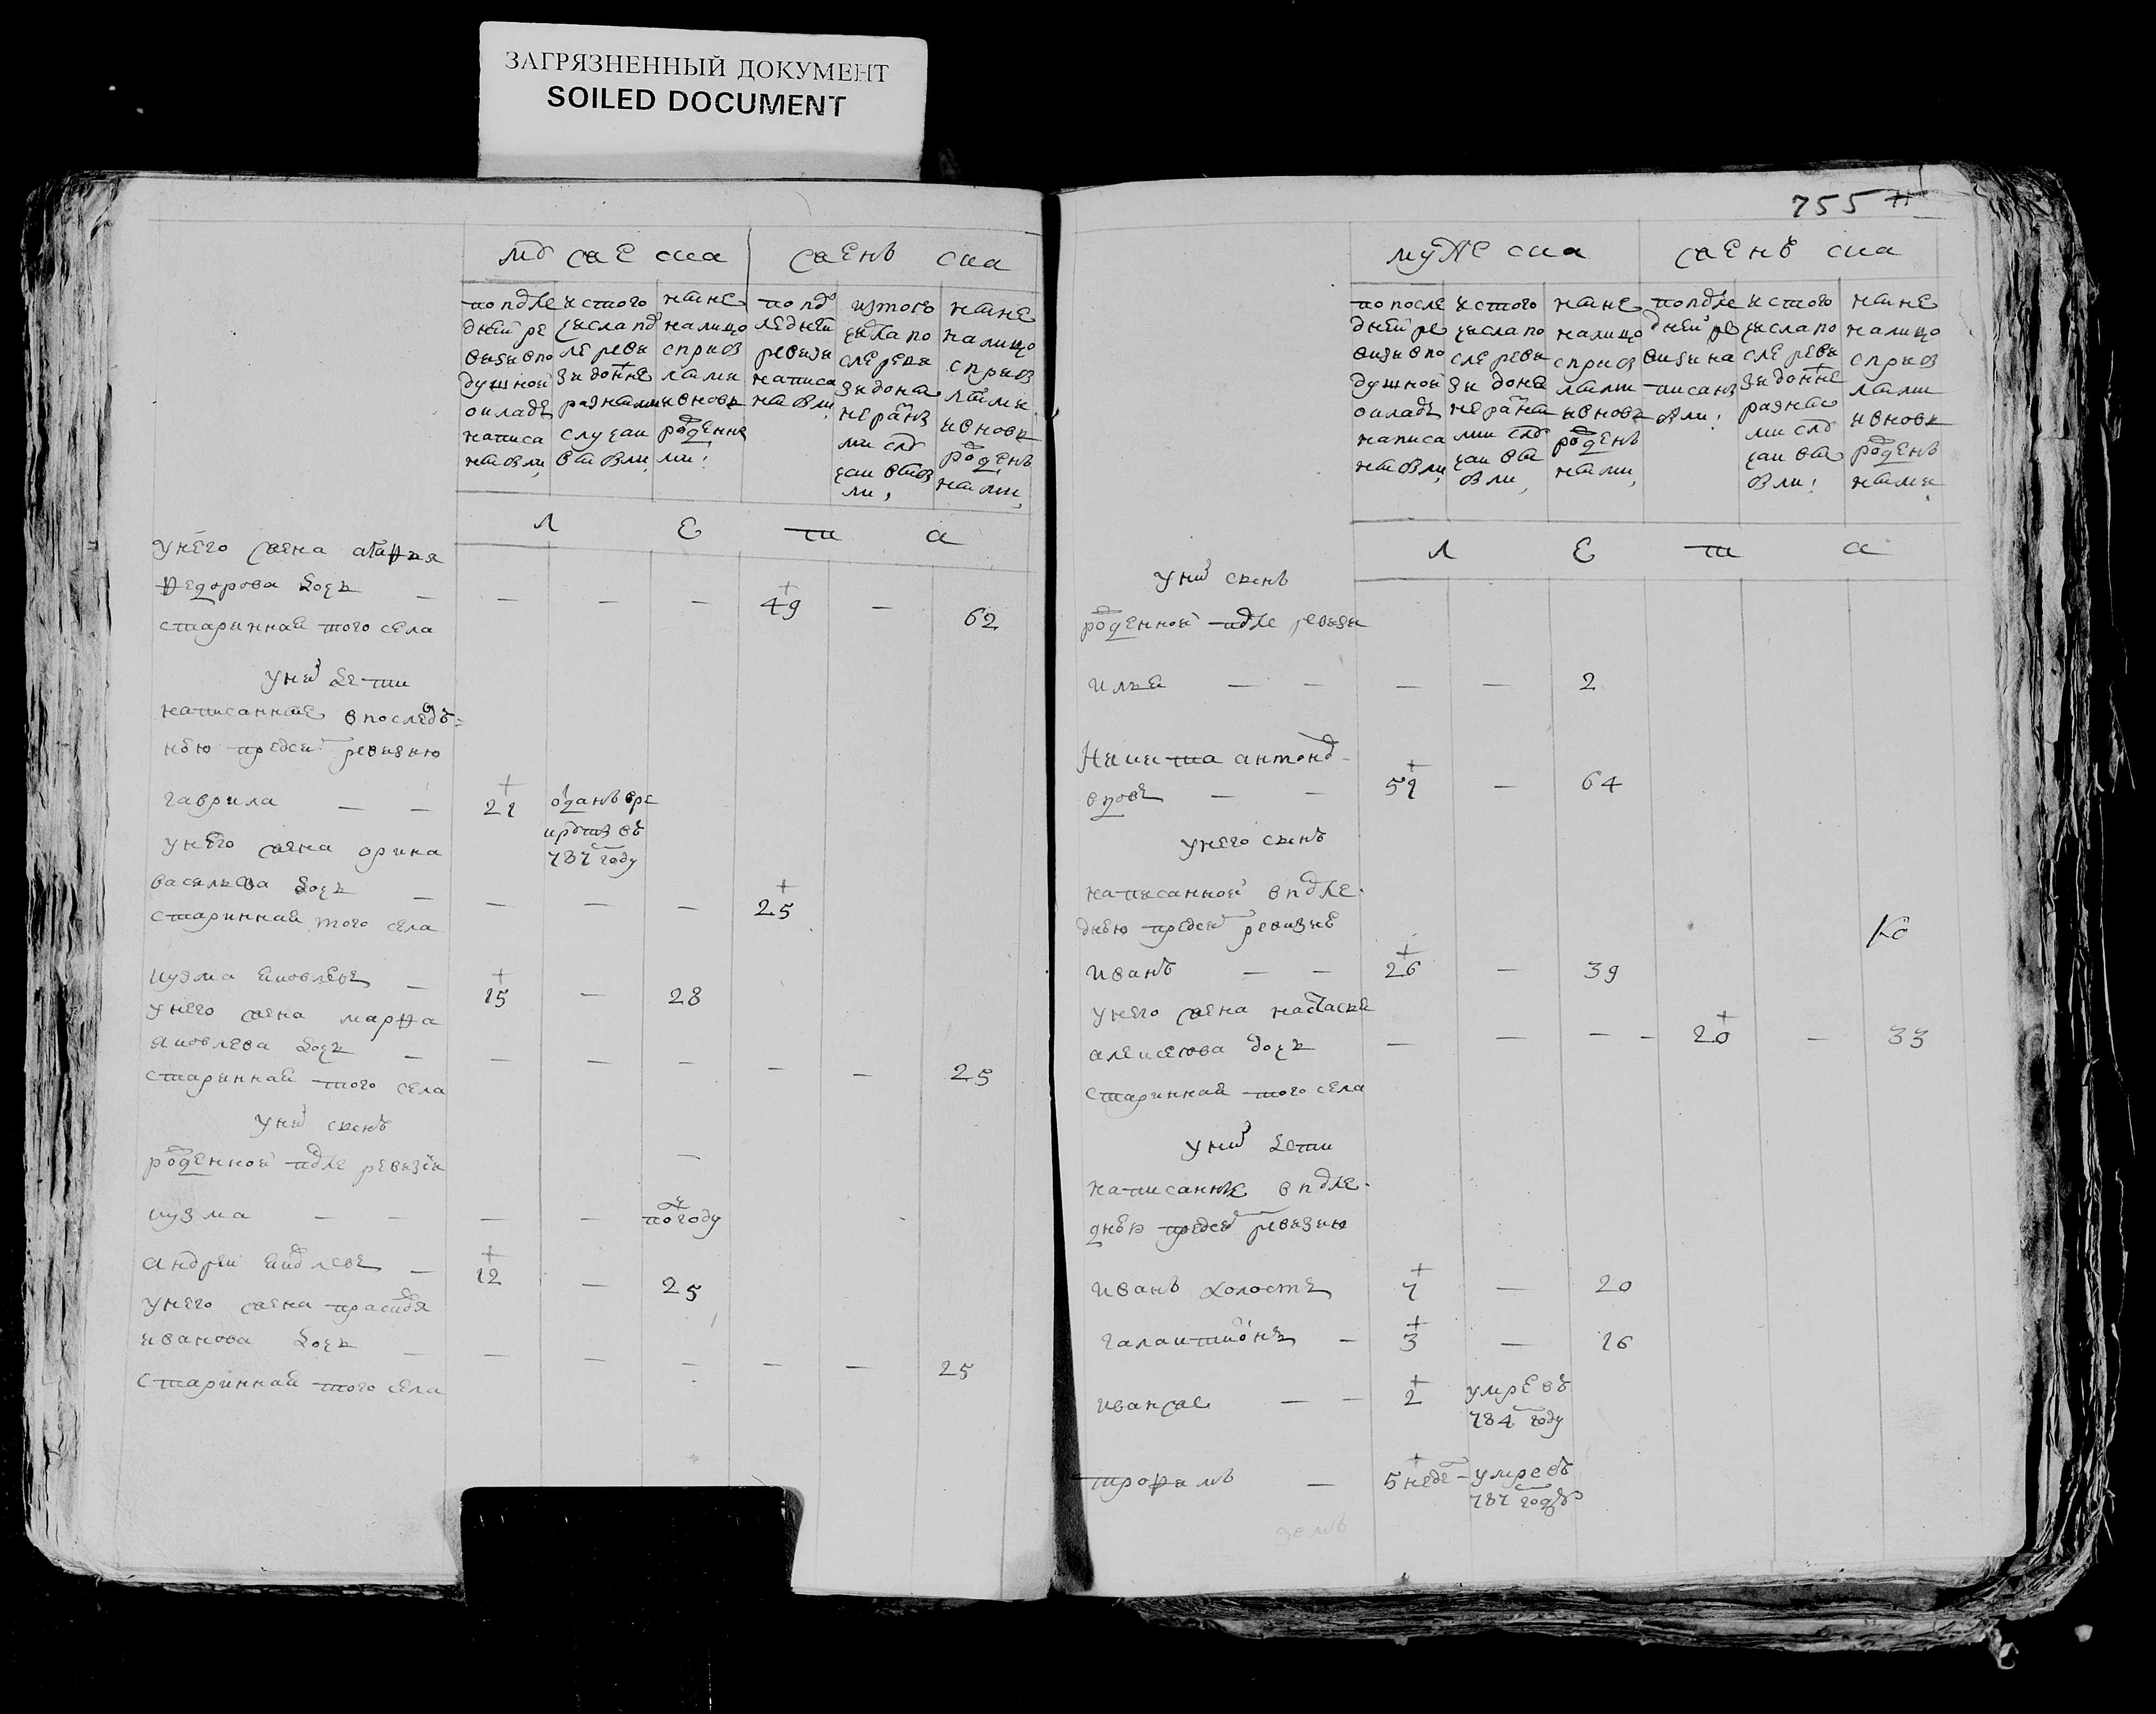 ЗАГРЯЗНЕННЫЙ ДОКУМЕНТ
SOILED DOCUMENT
муже ска женъ ска
по после дней ре визи в по душной окладъ написа ны были
ис того числа после реви зи до нне разными случаи выбыли
ныне на лицо с прибы лыми и вновь рожденны ми
по по следней ревизи написа ны были
из того числа по сле реви зи до на не разны ми слу чаи выбы ли
ныне на лицо с прибы лыми и вновь рожденъ ными
л е т а
у него жена агафья
федорова дочь — — — — 49 — 62
стариннай того села
у них дети
написанные в последъ=
нею пред сею ревизию
гаврила — — 21 отданъ в ре
круты въ
787 году
у него жена орина
васильева дочь — — — — 25
стариннай того села
кузма яковлевъ — 15 — 28
у него жена марфа
яковлева дочь — — — — — — 25
стариннай того села
у них сынъ
рожденной после ревизи
кузма — — — — по году
андрей яковлевъ — 12 — 25
у него жена прасковья
иванова дочь — — — — — — 25
стариннай того села
755
муже ска женъ ска
по после дней ре визи в по душной окладъ написа ны были
ис того числа по сле реви зи до на не разны ми слу чаи вы были
ныне на лицо с прибы лыми и вновь рожденъ ными
по после дней ре визи на писаны были
ис того числа по сле реви зи до нне разны ми слу чаи вы были
ныне на лицо с прибы лыми и вновь рожденъ ными
л е т а
у них сынъ
рожденной после ревизи
илья — — — — 2
никита антоно-
въ — — 51 — 64
у него сынъ
написанной в после-
днею пред сею ревизие
иванъ — — 26 — 39
у него жена настасья
алексеева дочь — — — — 20 — 33
стариннай того села
у них дети
написанные в после-
днею пред сею ревизию
иванъ холостъ 7 — 20
галактионъ — 3 — 16
иван же — — 2 умре въ
784 году
трофимъ — 5 неде- умре въ
787 году